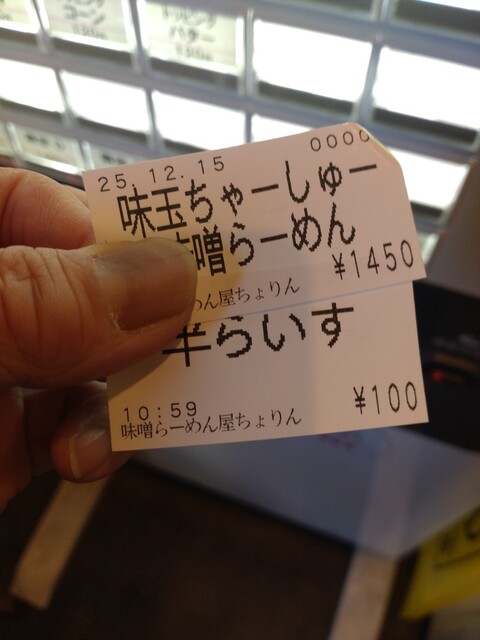 コーン
バター
25.12.15 0000
味玉ちゃーしゅー
味噌らーめん
¥1450
めん屋ちょりん
半らいす
¥100
10:59
味噌らーめん屋ちょりん